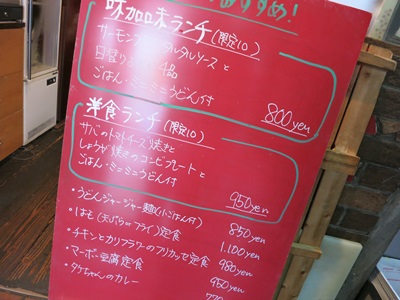 おすすめ!
味加味ランチ(限定10)
サーモンフ タルタルソースと
日替り 4品
ごはん・ミニミニうどん付
800yen
洋食ランチ(限定10)
サバのトマトチーズ焼きと
しょうが焼きのコンビプレートと
ごはん・ミニミニうどん付
950yen
・うどんジャージャー麺(小ごはん付) 850yen
・はも(天ぷらorフライ)定食 1.100yen
・チキンとカリフラワーのフリカッセ定食 980yen
・マーボー豆腐定食 950yen
・タケちゃんのカレー 770